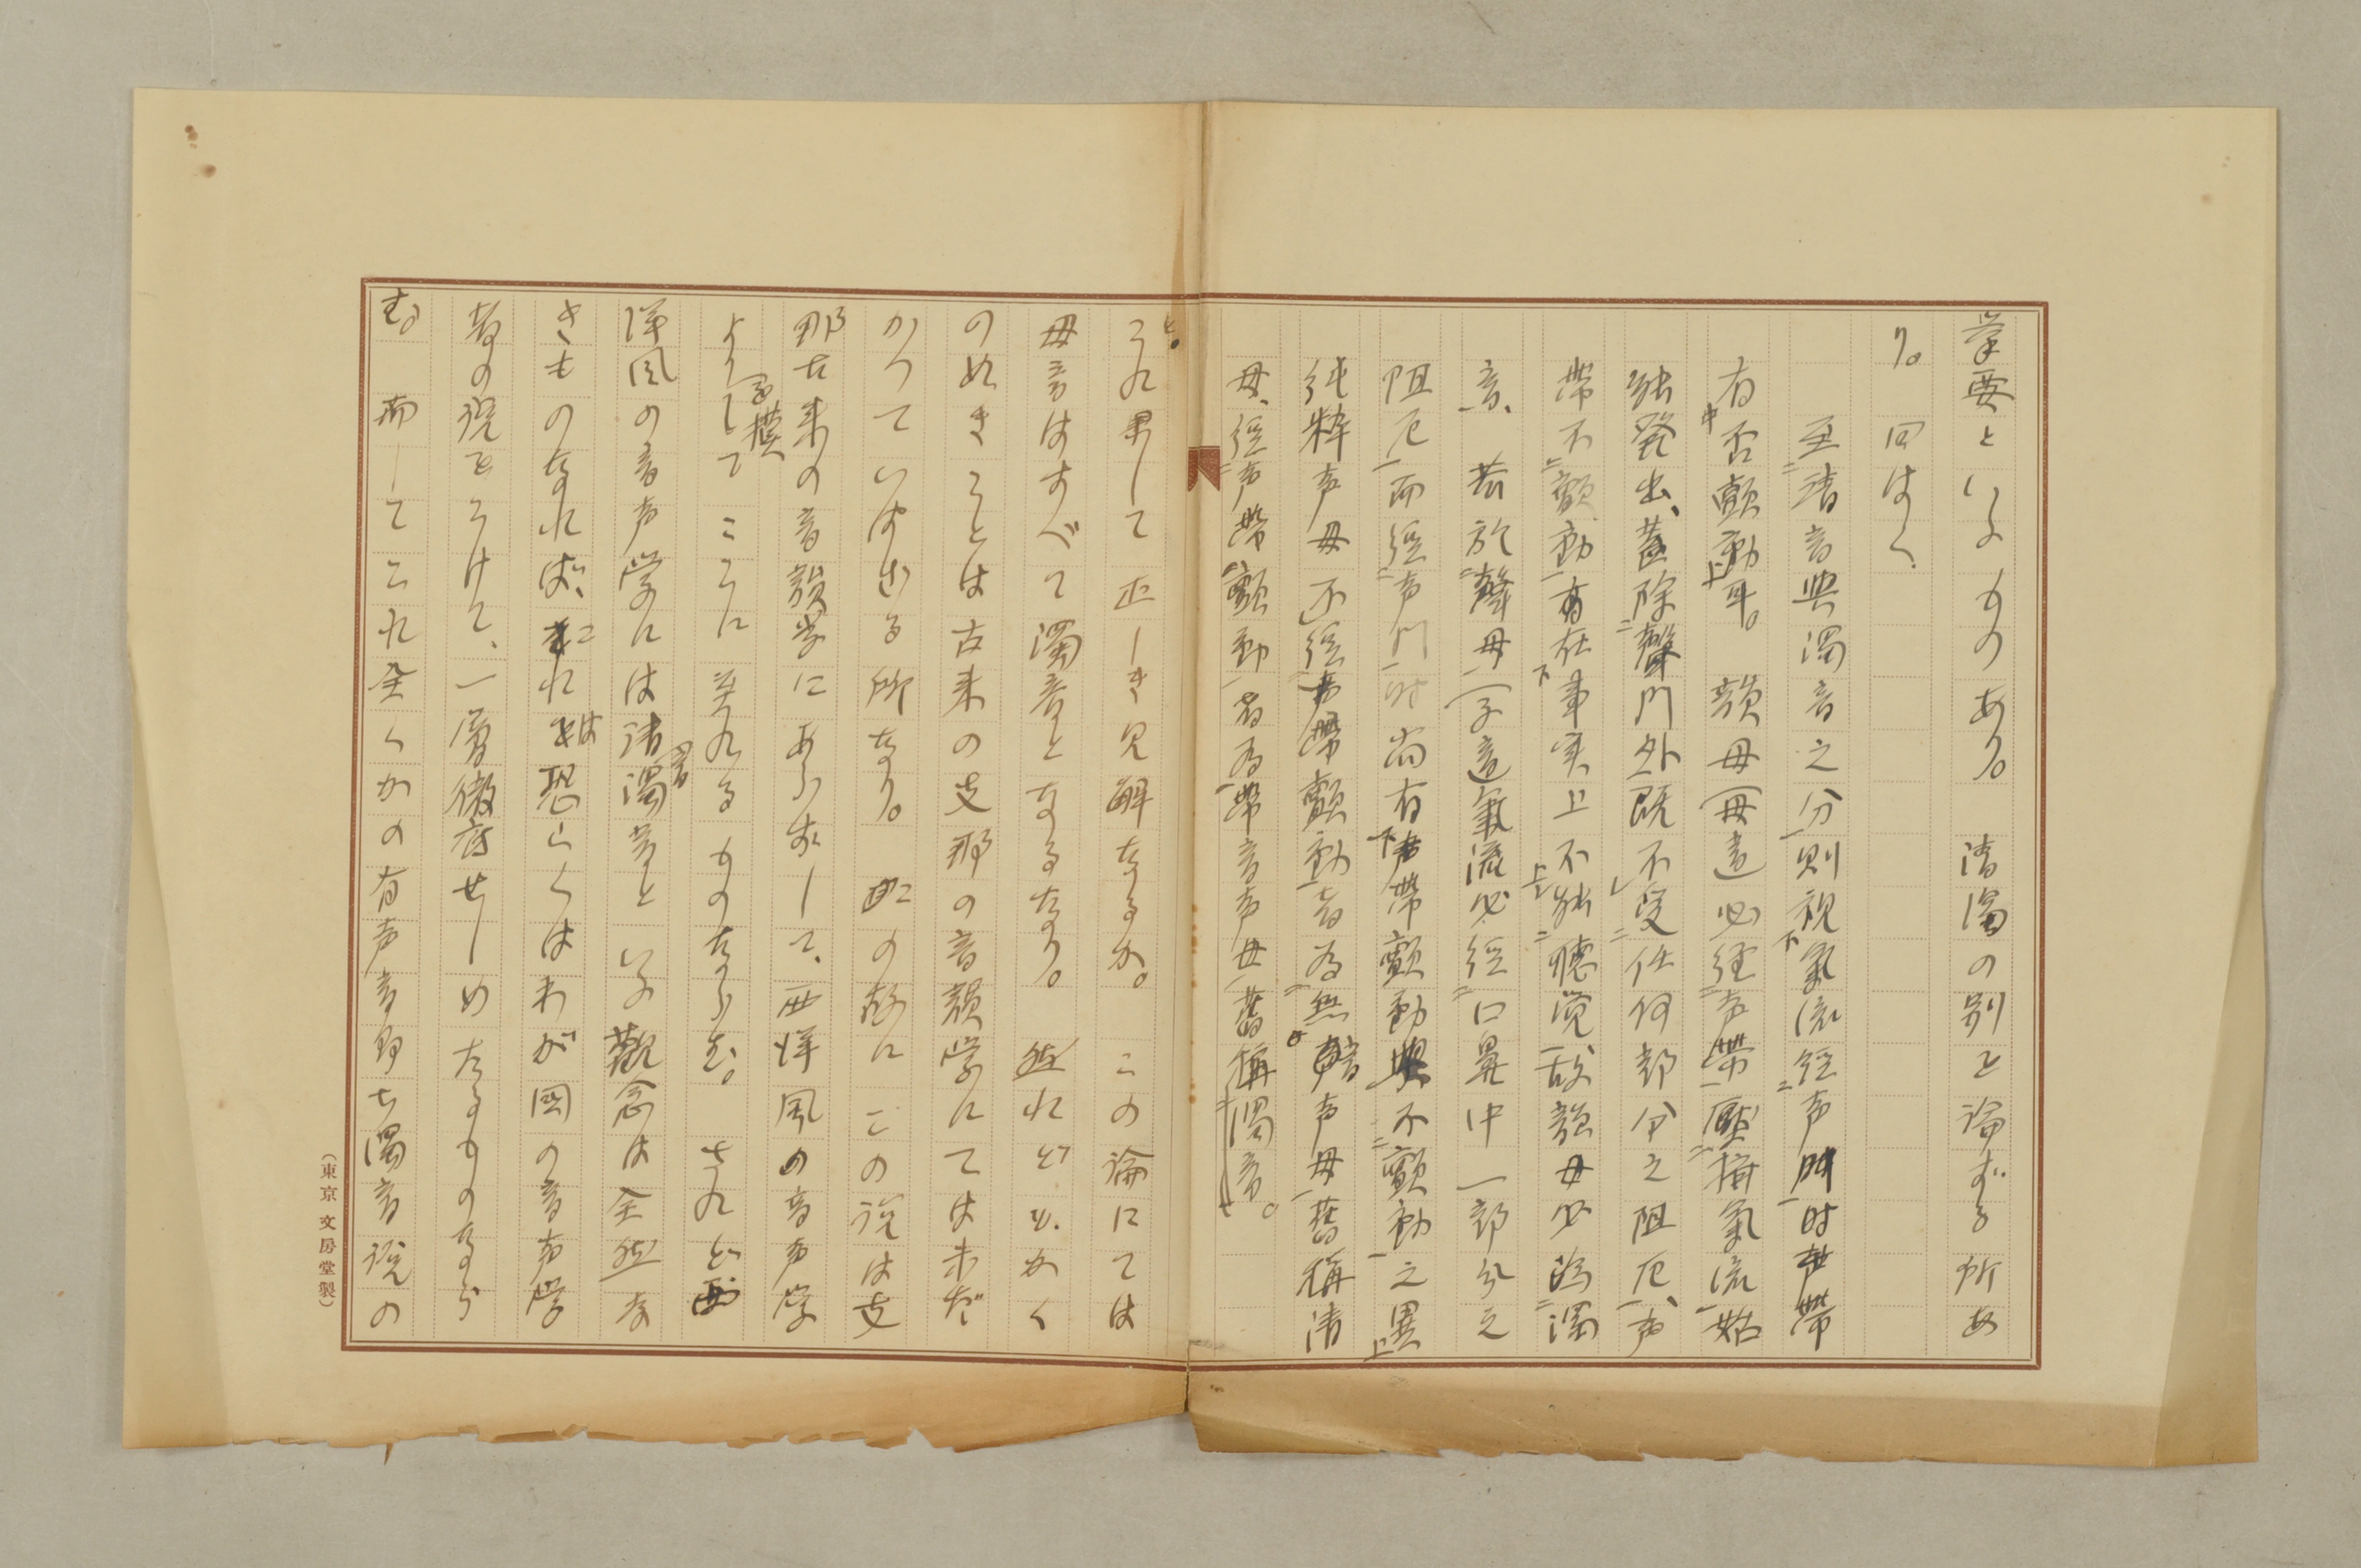 挙要といふものあり。清濁の別を論ずる所あ
り。曰はく、
至清音與濁音之分則視氣流経声門時声帯
有否顫動耳。韻母(母音)必経声帯壓搾氣流始
能発出、蓋除聲門外既不受任何部分之阻厄、声
帯不顫動、在事実上不能聴覚故韻母必為濁
音、若於聲母(子音)氣流必経口鼻中一部分之
阻厄而経声門時尚有声帯顫動與不顫動之異
純粋声母不経声帯顫動者為無音声母舊稱清
母、経声帯顫動者為帯音声母舊稱濁音。
と。これ果して正しき見解なるか。この論にては
母音はすべて濁音となるなり。然れども、かく
の如きことは古来の支那の音韻学にては未だ
かつていはざる所なり。蓋この説は支
那古来の音韻学にあらずして、西洋風の音声学
よりしてここに至れるものならむ。されど西
洋風の音声学には清音濁音といふ観念は全然な
きものなれば、これは恐らくはわが国の音声学
者の説をうけて、一層徹底せしめたるものなら
む。而してこれ全くかの有声音即ち濁音説の
(東京 文房堂製)